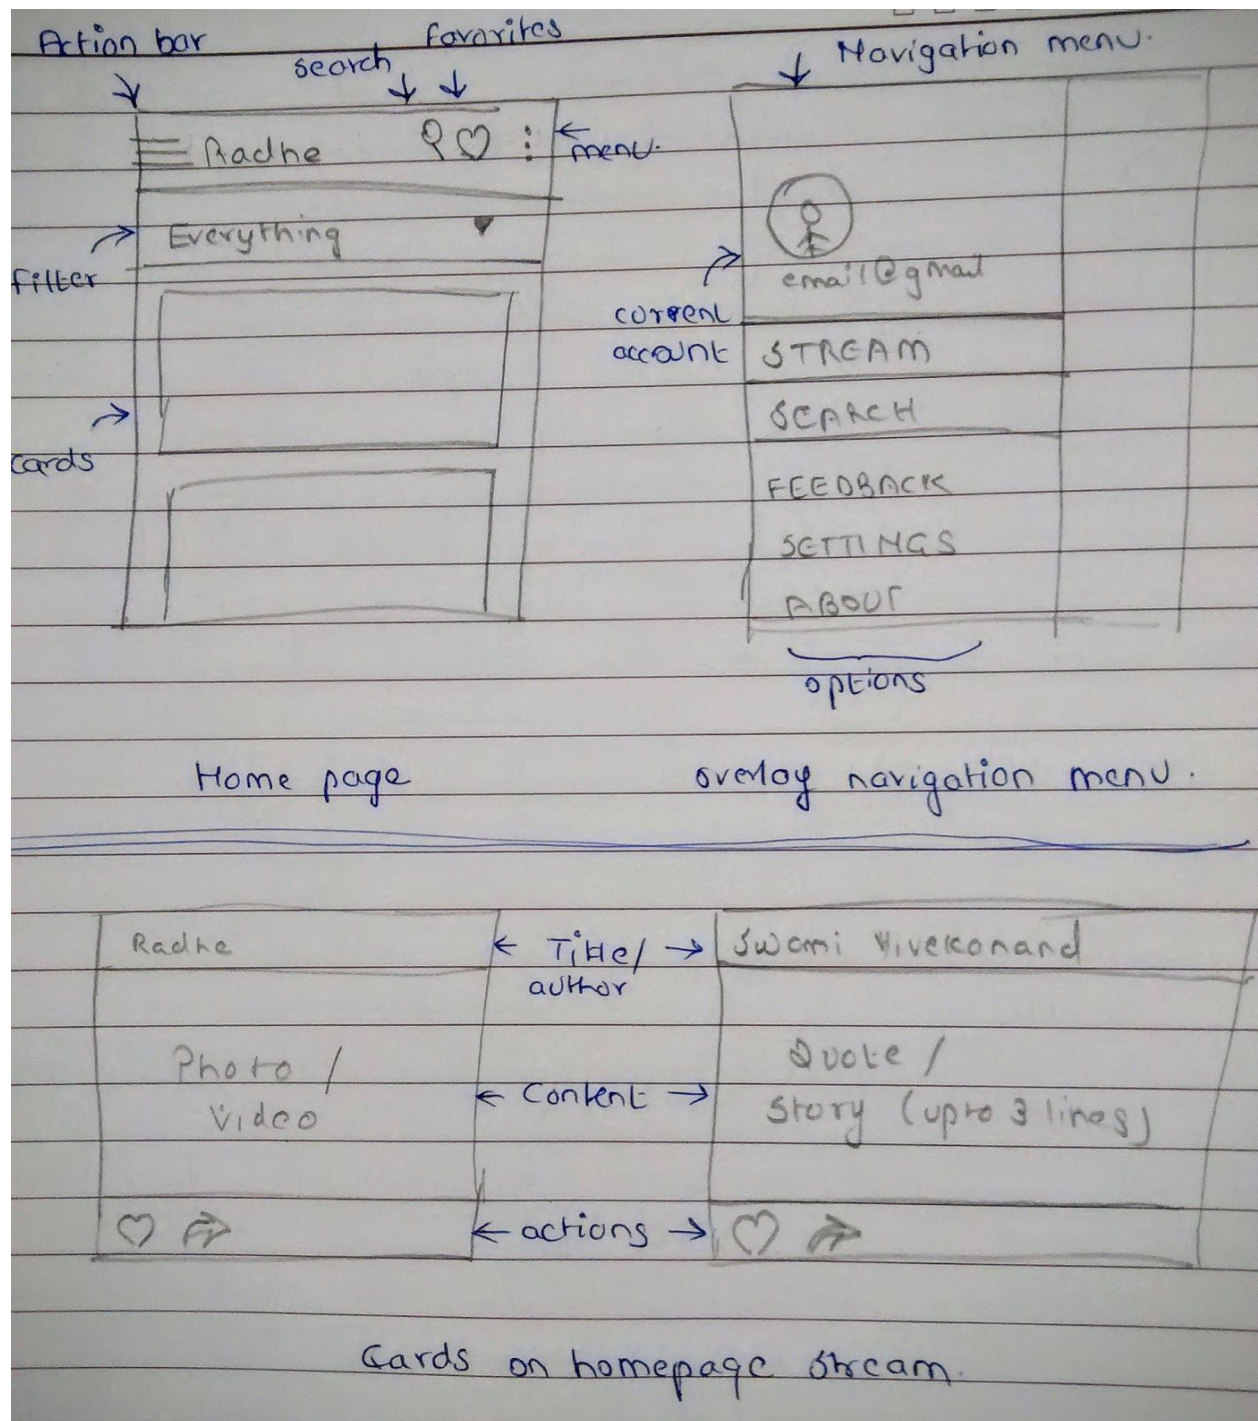 Action bar
search
favorites
Navigation menu.
Radhe
menu.
Everything
filter
cards
email@gmail
current
account
STREAM
SEARCH
FEEDBACK
SETTINGS
ABOUT
options
Home page
overlay navigation menu.
Radhe
Title/
author
Swami Vivekanand
Photo /
Video
Content
Quote /
Story (upto 3 lines)
actions
Cards on homepage stream.